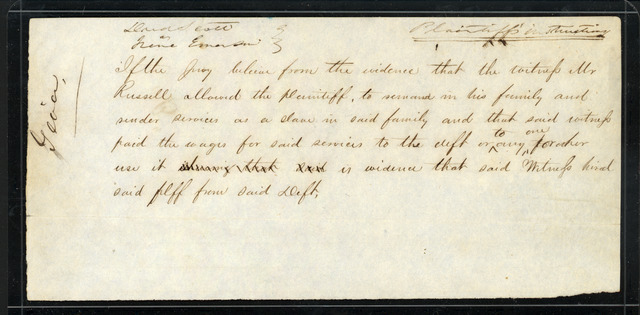 Dred Scott } Plaintiff's instruction
vs
Irene Emerson }
Given,
If the Jury beleive from the evidence that the witness Mr
Russell allowed the plaintiff, to remain in his family and
render services as a slave in said family and that said witness
paid the wages for said services to the deft or to any one for her
use it is evidence that said Witness hired
said plff from said Deft,